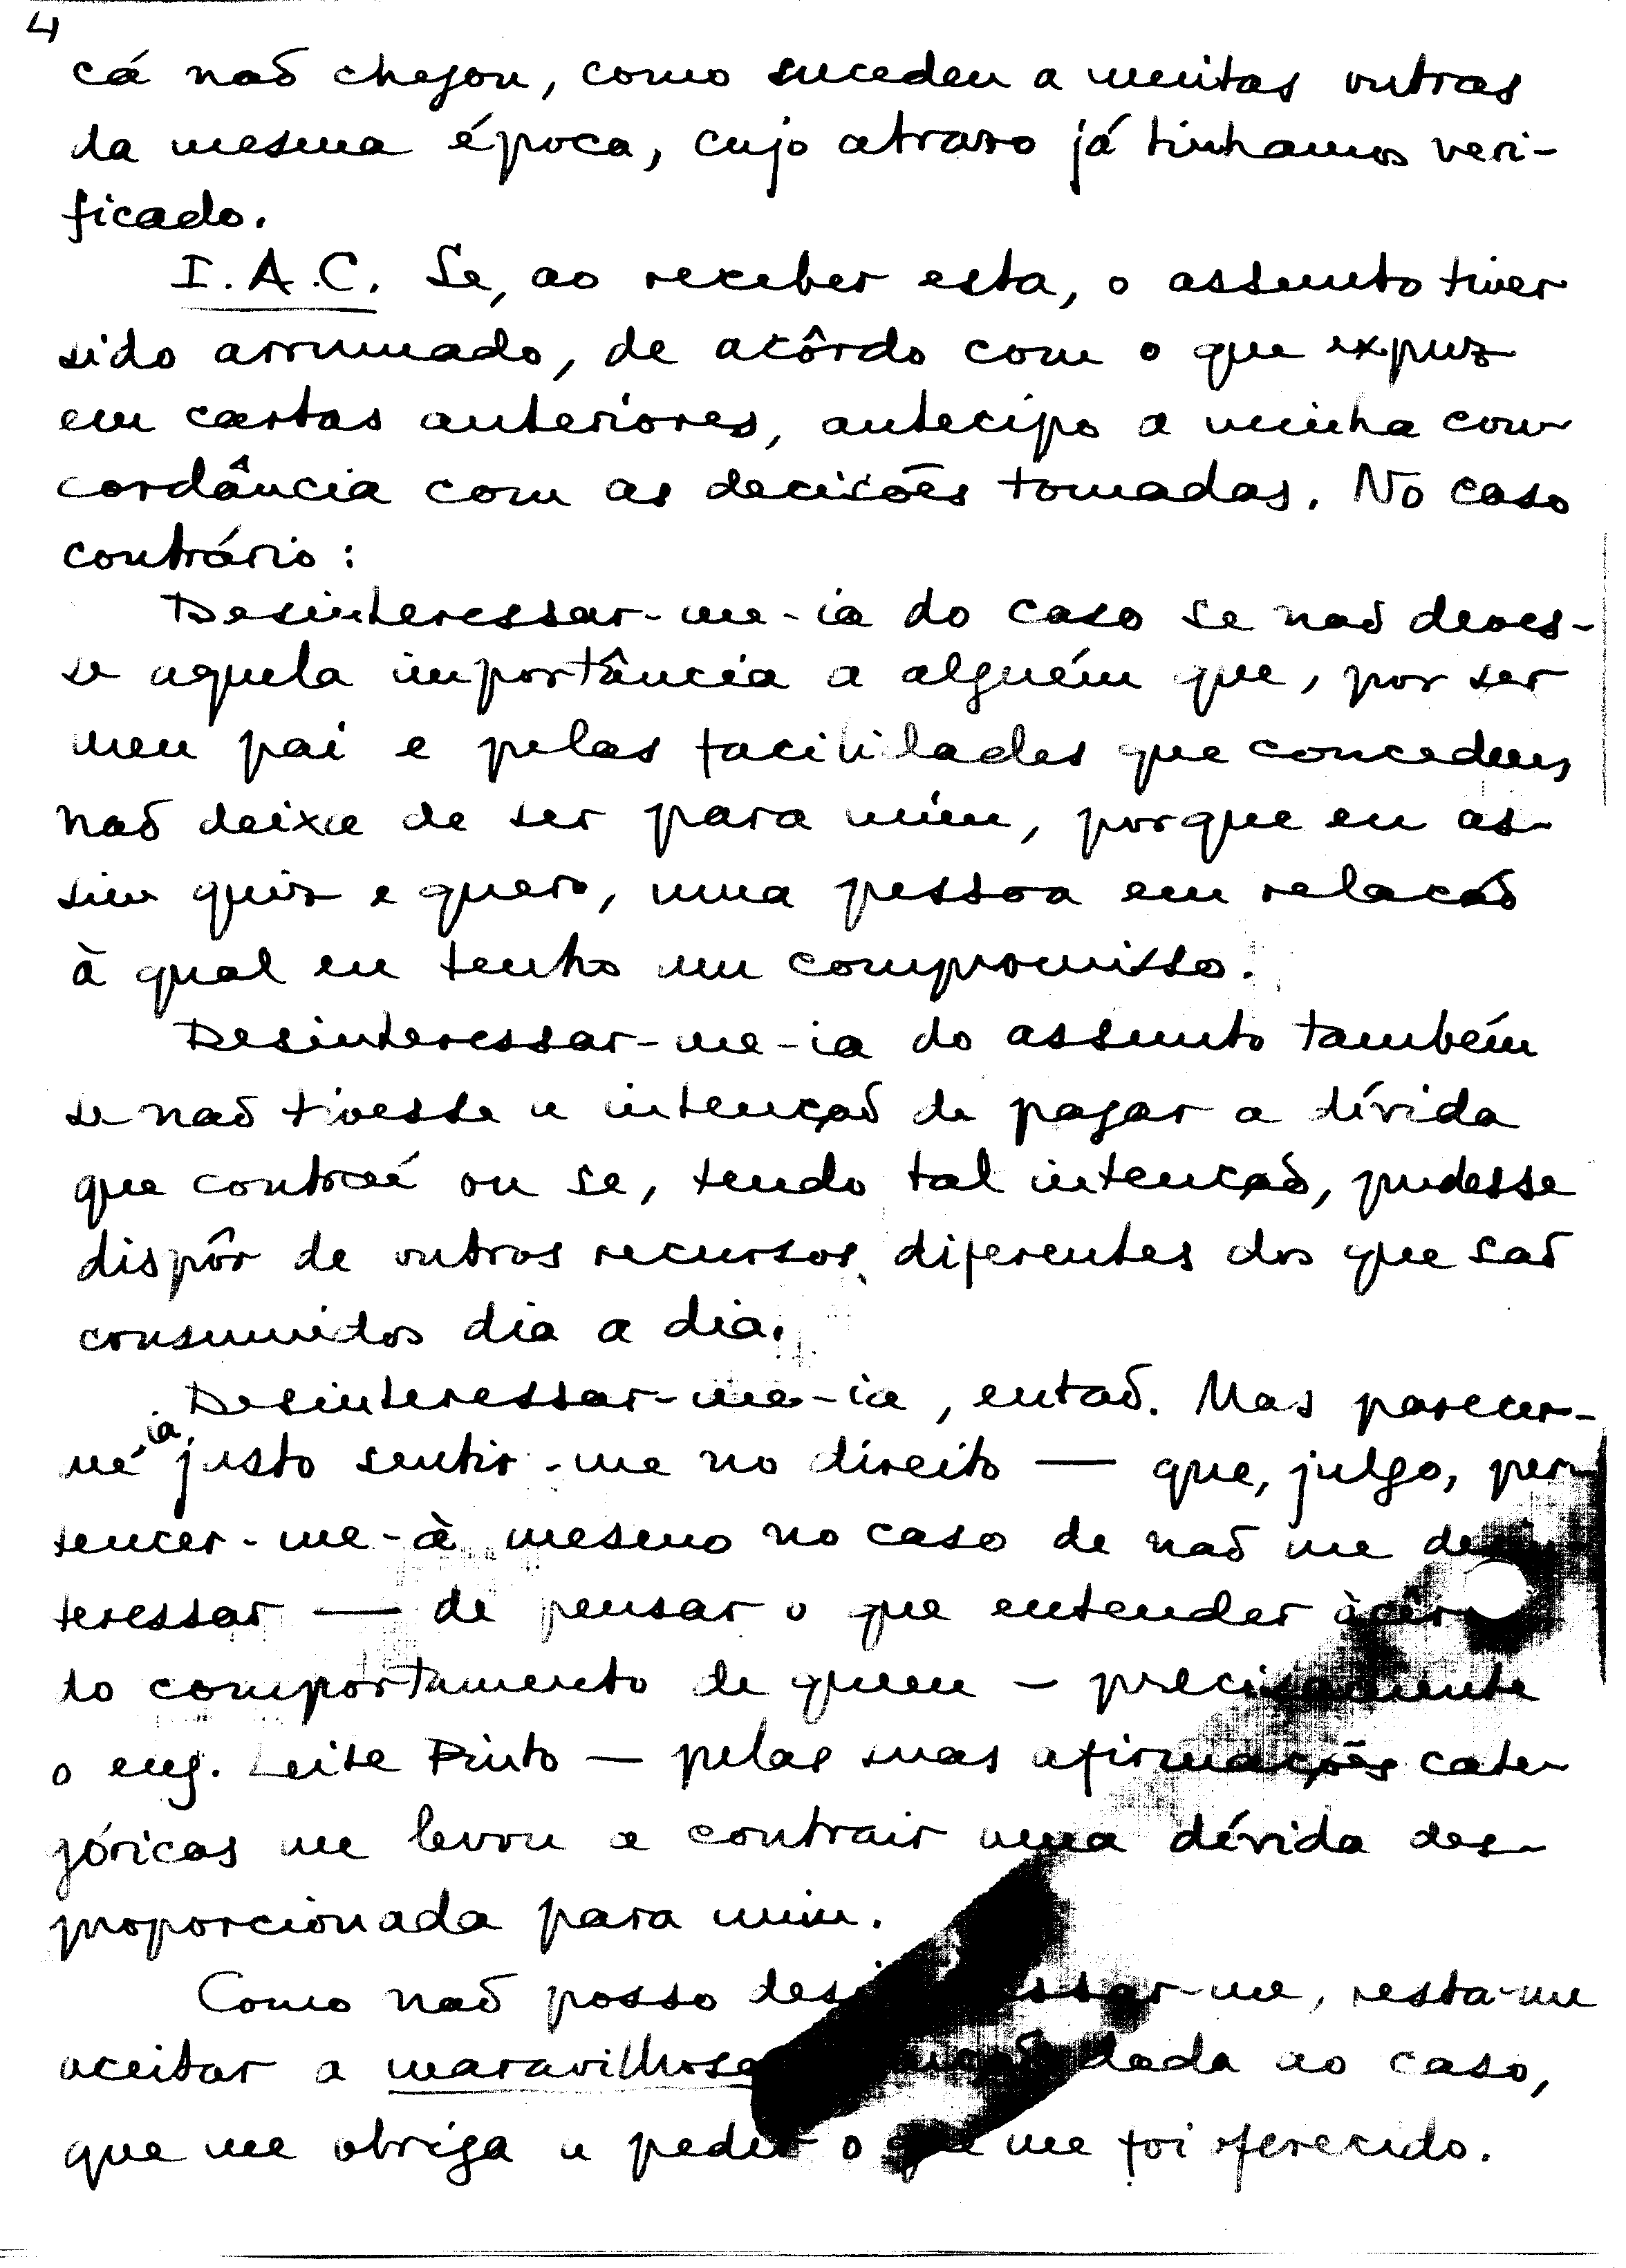 4
cá naõ chegou, como sucedeu a muitas outras
da mesma época, cujo atraso já tinhamos veri-
ficado.
I.A.C. Se, ao receber esta, o assunto tiver
sido arrumado, de acôrdo com o que expuz
em cartas anteriores, antecipo a minha con-
cordância com as decisões tomadas. No caso
contrário:
Desinteressar-me-ia do caso se naõ deves-
se aquela importância a alguém que, por ser
meu pai e pelas facilidades que concedeu,
naõ deixa de ser para mim, porque eu as-
sim quiz e quero, uma pessoa em relaçaõ
à qual eu tenho um compromisso.
Desinteressar-me-ia do assunto também
se naõ tivesse a intençaõ de pagar a dívida
que contraí ou se, tendo tal intençaõ, pudesse
dispôr de outros recursos, diferentes dos que saõ
consumidos dia a dia.
Desinteressar-me-ia, entaõ. Mas parecer-
me-ia justo sentir-me no direito — que, julgo, per-
tencer-me-à mesmo no caso de naõ me desin-
teressar — de pensar o que entender àcêr
do comportamento de quem — precisamente
o eng. Leite Pinto — pelas suas afirmações cate-
góricas me levou a contrair uma dívida des-
proporcionada para mim.
Como naõ posso desinteressar-me, resta-me
aceitar a maravilhosa dada ao caso,
que me obriga a pedir o que me foi oferecido.